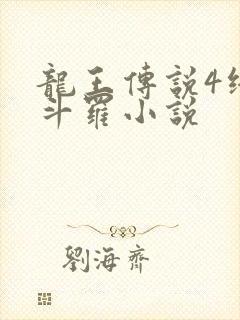 龍王傳說4
斗羅小說
劉海齊